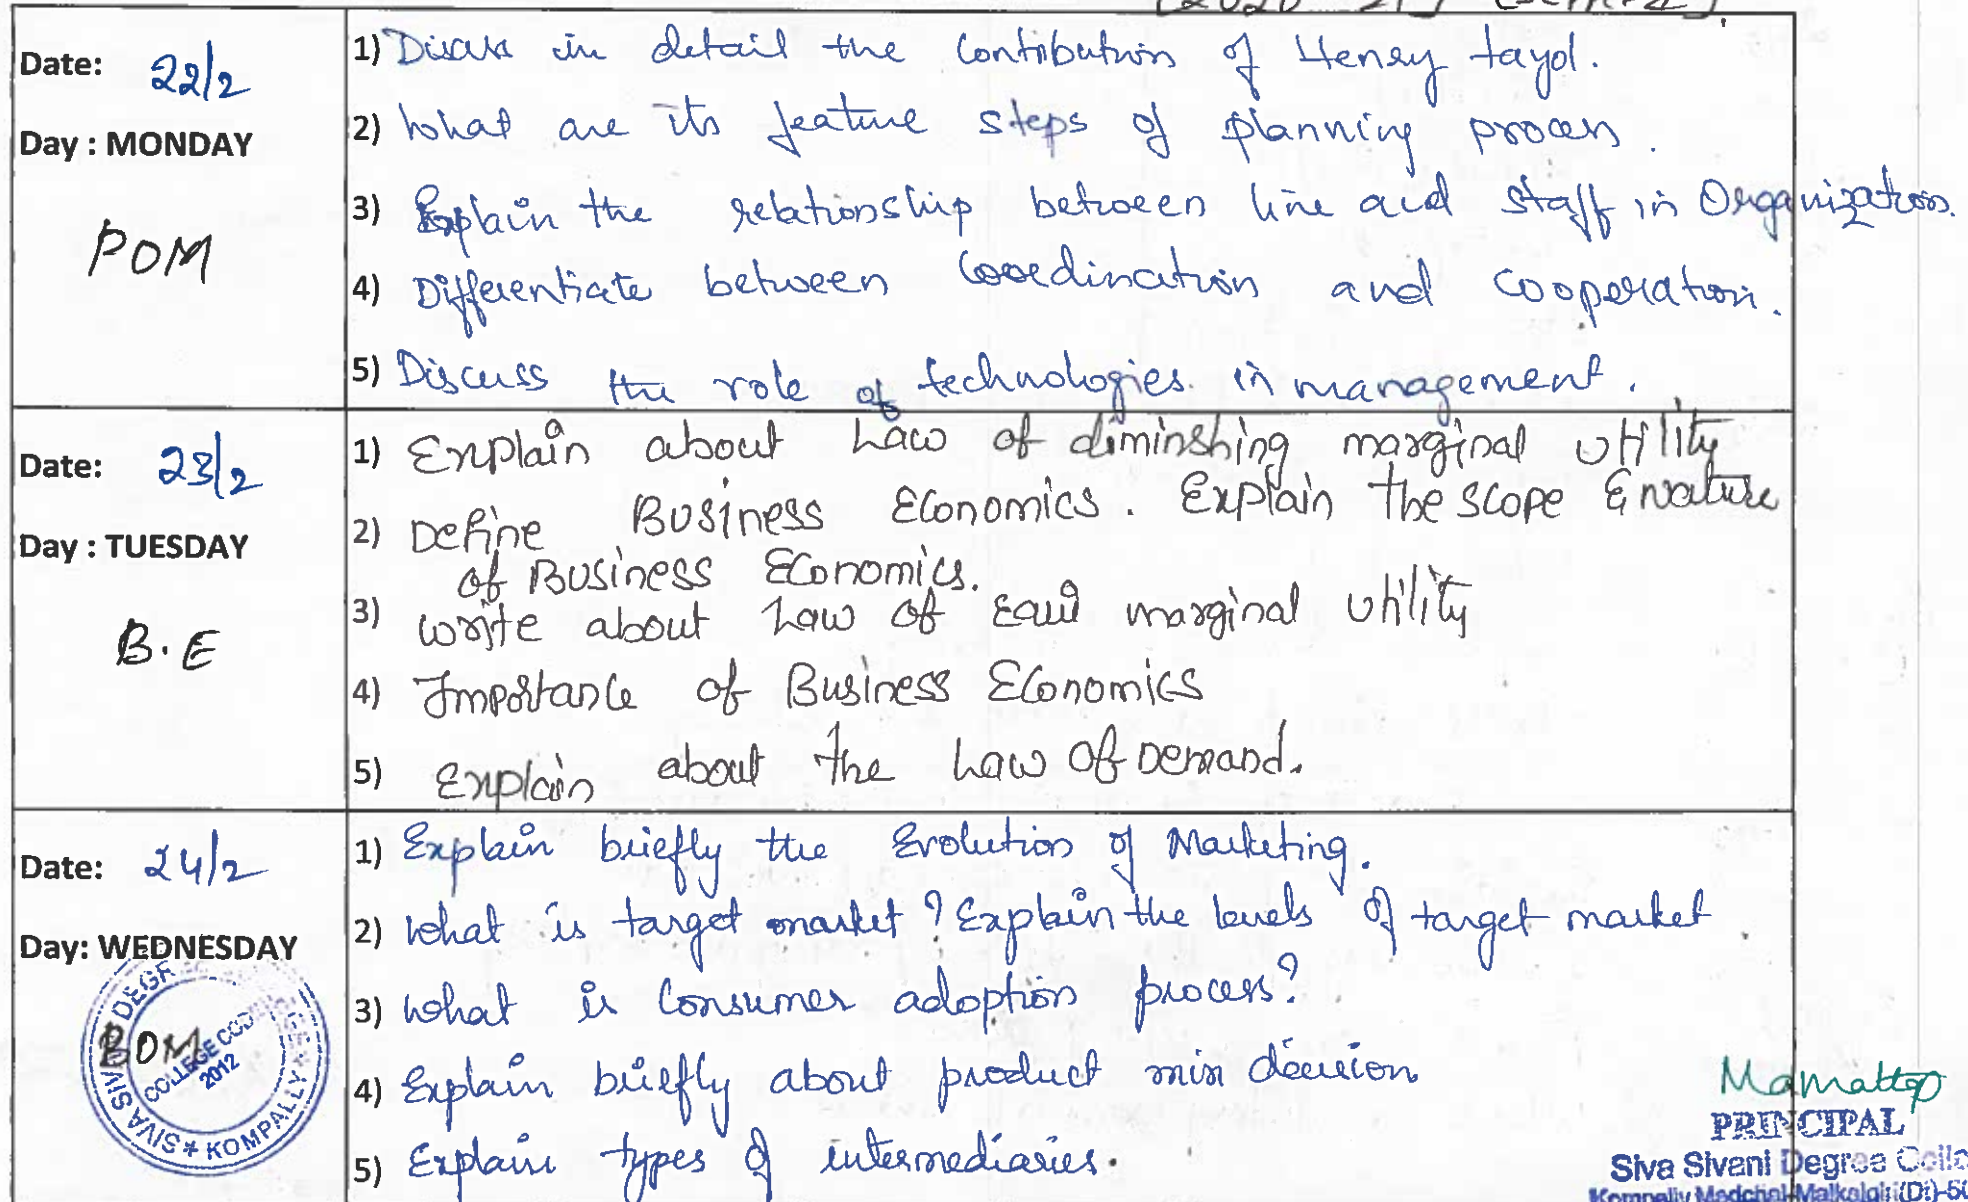 (2020-21)
Date: 22/2
Day : MONDAY
POM
1) Discuss in detail the Contribution of Henry fayol.
2) What are its feature steps of planning process.
3) Explain the relationship between line and staff in Organization.
4) Differentiate between Coordination and cooperation.
5) Discuss the role of technologies. in management.
Date: 23/2
Day : TUESDAY
B.E
1) Explain about Law of diminshing marginal utility
2) Define Business Economics. Explain the scope & nature
of Business Economics.
3) write about Law of marginal utility
4) Importance of Business Economics
5) Explain about the Law of Demand.
Date: 24/2
Day: WEDNESDAY
BOM
SIVA SIVANI DEGREE COLLEGE * KOMPALLY *
COLLEGE CODE
2012
1) Explain briefly the Evolution of Marketing.
2) What is target market? Explain the levels of target market.
3) What is Consumer adoption process?
4) Explain briefly about product mix decision
5) Explain types of intermediaries.
PRINCIPAL
Siva Sivani Degree Colle
Kompally Medchal-Malkajgiri(Dt)-50